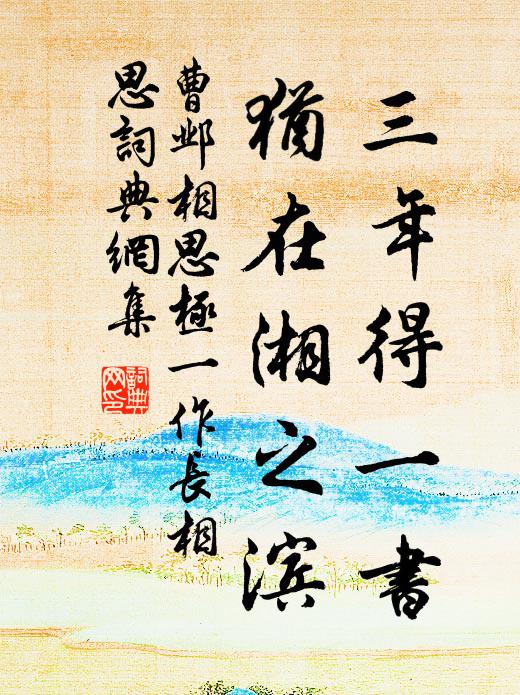 三年得一書
猶在湘之滨
曹邺相思極一作長相
思詞典網集
詞典
网印